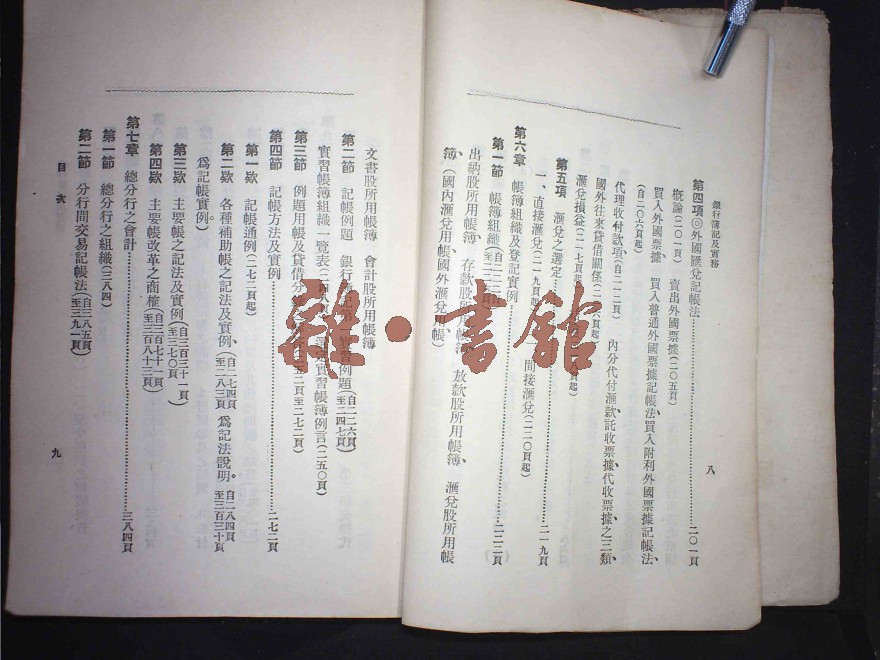 銀行簿記及實務
八
第四項◎外國匯兌記帳法……二〇一頁
概論(二〇一頁) 賣出外國票據(二〇五頁)
買入外國票據、 買入普通外國票據記帳法、買入附利外國票據記帳法、
(自二〇六頁起)
代理收付款項(自二一二頁) 內分代付滙款、託收票據、代收票據之三類、
國外往來貸借關係
滙兌損益(二一七頁起)
第五項 滙兌之選定……二一九頁
一、直接滙兌(二一九頁起) 間接滙兌(二二〇頁起)
第六章 帳簿組織及登記實例
第一節 帳簿組織……二二二頁
出納股所用帳簿、 存款股所用帳簿、 放款股所用帳簿、 滙兌股所用帳
簿、(國內滙兌用帳、國外滙兌用帳)
文書股所用帳簿 會計股所用帳簿
第二節 記帳例題 銀行簿記例題(自二二六頁至二四七頁)
實習帳簿組織一覽表 選定實習帳簿例言(二五〇頁)
第三節 例題用帳及貸借分
第四節 記帳方法及實例……二七二頁
第一欵 記帳通例(二七二頁起)
第二欵 各種補助帳之記法及實例、(自二七四頁至二八三頁爲記法說明。自二八四頁至三百三十頁
爲記帳實例)。
第三欵 主要帳之記法及實例(自三百三十一頁至三七〇頁)
第四欵 主要帳改革之商榷(自三百七十一頁至三百八十三頁)
第七章 總分行之會計……三八四頁
第一節 總分行之組織(三八四)
第二節 分行間交易記帳法(自三八五頁至三九一頁)
目次
九
雜·書館